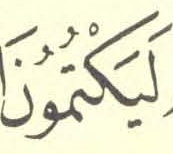 لَيَكْتُمُونَ